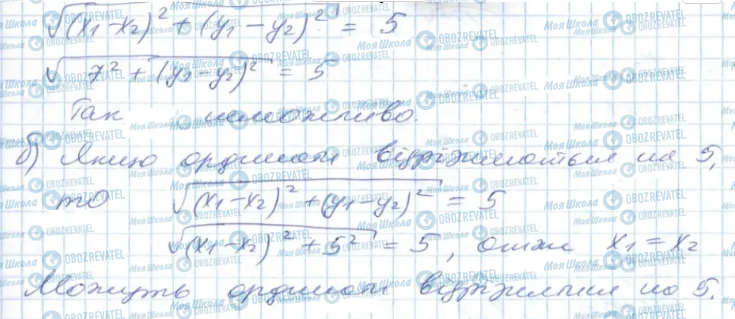 √(x₁-x₂)² + (y₁-y₂)² = 5
√7² + (y₁-y₂)² = 5
Так неможливо.
б) Якщо ординати відрізняються на 5,
то √(x₁-x₂)² + (y₁-y₂)² = 5
√(x₁-x₂)² + 5² = 5, отже x₁ = x₂
Можуть ординати відрізнятися на 5.